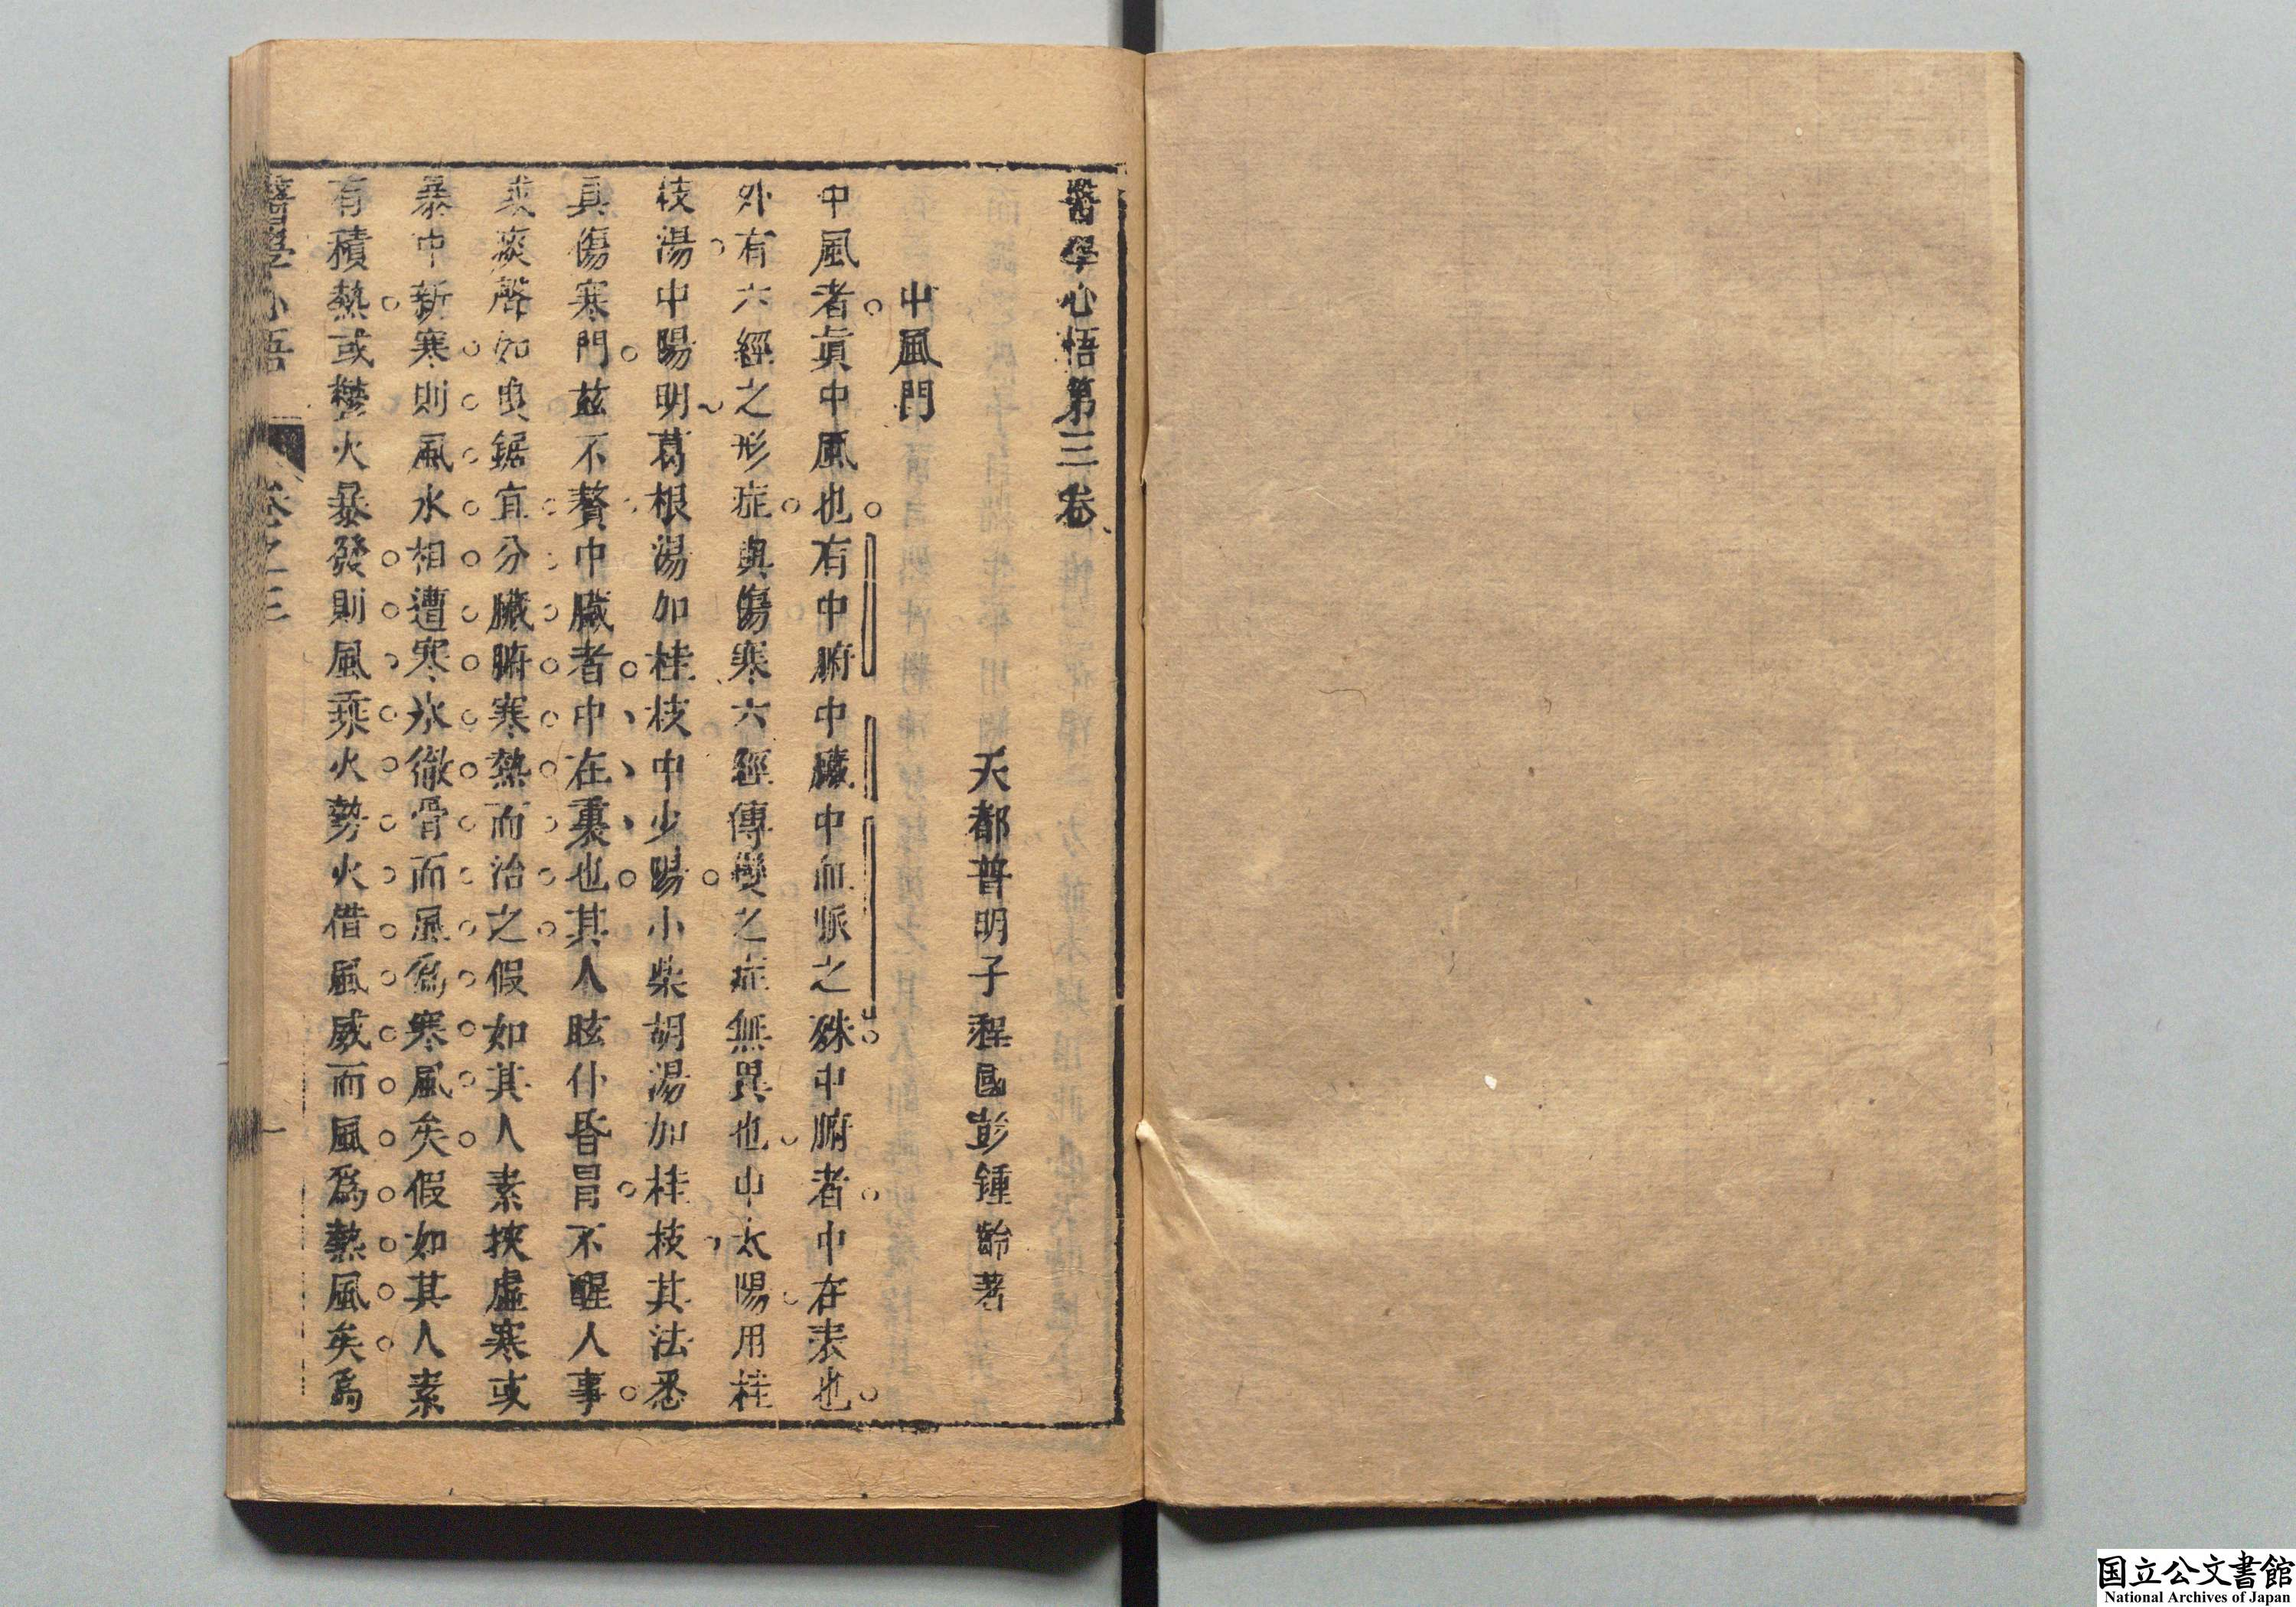 醫學心悟第三卷
天都普明子程國彭鍾齡著
中風門
中風者眞中風也有中腑中臟中血脈之殊中腑者中在表也
外有六經之形症與傷寒六經傳變之症無異也中太陽用桂
枝湯中陽明葛根湯加桂枝中少陽小柴胡湯加桂枝其法悉
具傷寒門茲不贅中臟者中在裏也其人眩仆昏冒不醒人事
或痰聲如曳鋸宜分臟腑寒熱而治之假如其人素挾虛寒或
暴中新寒則風水相遭寒冰徹骨而風爲寒風矣假如其人素
有積熱或鬱火暴發則風乘火勢火借風威而風爲熱風矣爲
醫學心悟 卷之三 一
国立公文書館
National Archives of Japan